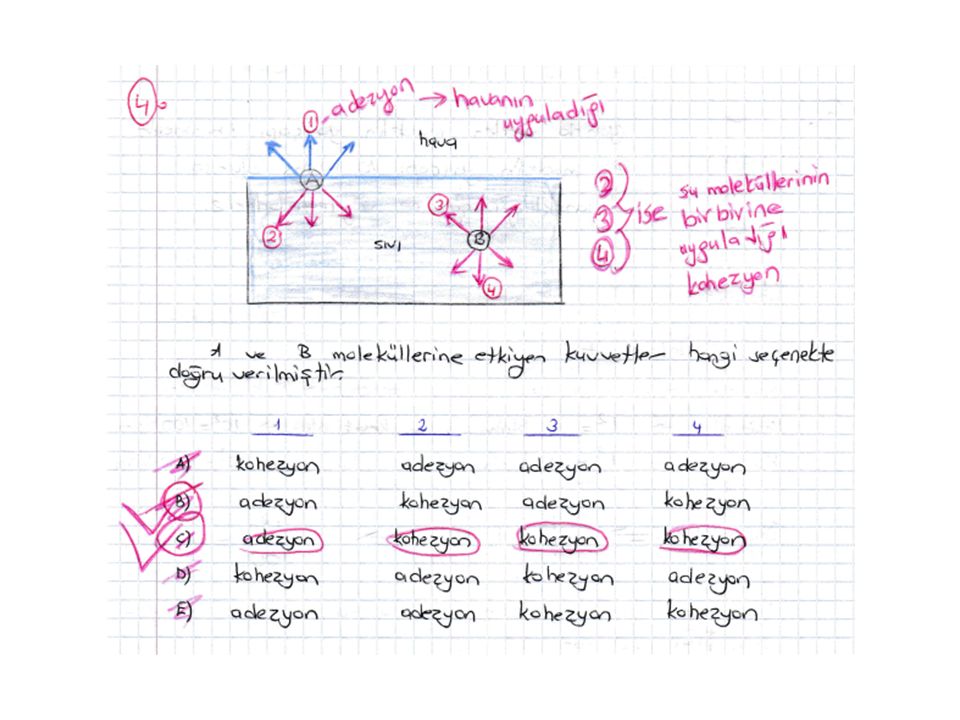 4.
1 adezyon → havanın
uyguladığı
hava
A
2
3
B
sıvı
4
2
3 ise
4
su moleküllerinin
birbirine
uyguladığı
kohezyon
A ve B moleküllerine etkiyen kuvvetler hangi seçenekte
doğru verilmiştir.
1 2 3 4
A) kohezyon adezyon adezyon adezyon
B) adezyon kohezyon adezyon kohezyon
C) adezyon kohezyon kohezyon kohezyon
D) kohezyon adezyon kohezyon adezyon
E) adezyon adezyon kohezyon kohezyon